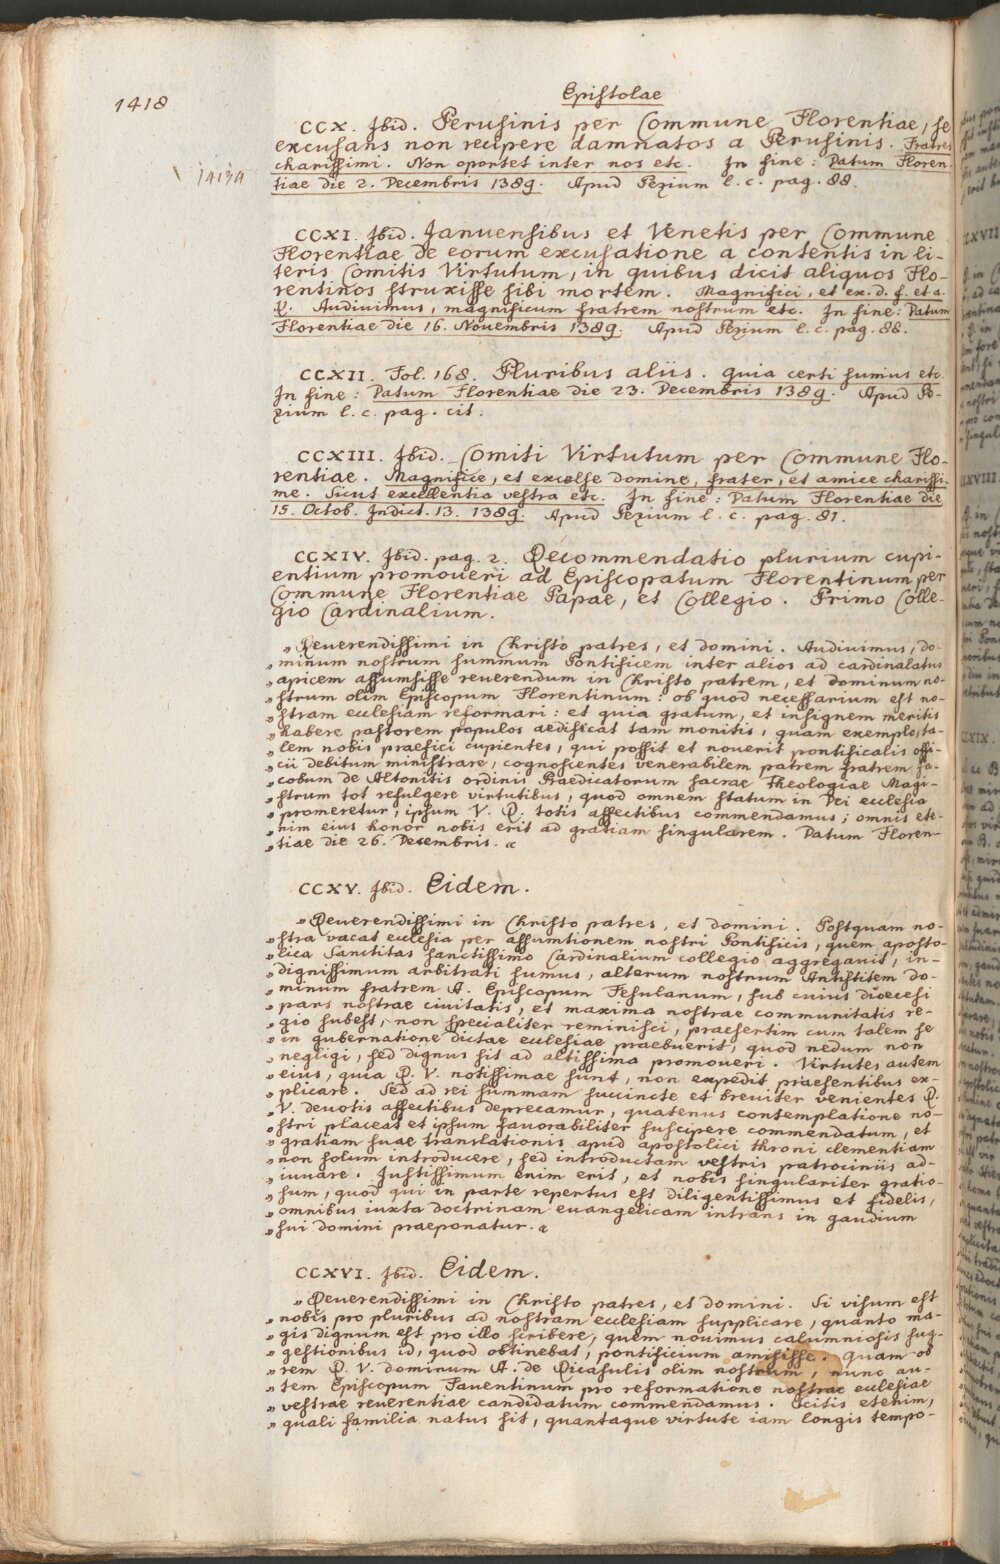 1418
Epistolae
CCX. Ibid. Perusinis per Commune Florentiae, se
excusans non recipere damnatos a Perusinis. Fratres
charissimi. Non oportet inter nos etc. In fine: Datum Floren-
tiae die 2. Decembris 1389. Apud Pezium l. c. pag. 88.
CCXI. Ibid. Januensibus et Venetis per Commune
Florentiae de eorum excusatione a contentis in li-
teris Comitis Virtutum, in quibus dicit aliquos Flo-
rentinos struxisse sibi mortem. Magnifici, et ex. d. f. et a.
Q. Audiuimus, magnificum fratrem nostrum etc. In fine: Datum
Florentiae die 16. Nouembris 1389. Apud Pezium l. c. pag. 88.
CCXII. Fol. 168. Pluribus aliis. quia certi sumus etc.
In fine: Datum Florentiae die 23. Decembris 1389. Apud Pe-
zium l. c. pag. cit.
CCXIII. Ibid. Comiti Virtutum per Commune Flo-
rentiae. Magnifice, et excelse domine, frater, et amice charissi-
me. Sicut excellentia vestra etc. In fine: Datum Florentiae die
15. Octob. Indict. 13. 1389. Apud Pezium l. c. pag. 81.
CCXIV. Ibid. pag. 2. Recommendatio plurium cupi-
entium promoueri ad Episcopatum Florentinum per
Commune Florentiae Papae, et Collegio. Primo Colle-
gio Cardinalium.
„ Reuerendissimi in Christo patres, et domini. Audiuimus, do-
„ minum nostrum summum Pontificem inter alios ad cardinalatus
„ apicem assumsisse reuerendum in Christo patrem, et dominum no-
„ strum olim Episcopum Florentinum: ob quod necessarium est no-
„ stram ecclesiam reformari: et quia gratum, et insignem meritis
„ habere pastorem populos aedificat tam monitis, quam exemplo, ta-
„ lem nobis praefici cupientes, qui possit et nouerit pontificalis offi-
„ cii debitum ministrare, cognoscentes venerabilem patrem fratrem Ja-
„ cobum de Altonitis ordinis Praedicatorum sacrae Theologiae Magi-
„ strum tot refulgere virtutibus, quod omnem statum in Dei ecclesia
„ promeretur, ipsum V. R. totis affectibus commendamus; omnis ete-
„ nim eius honor nobis erit ad gratiam singularem. Datum Floren-
„ tiae die 26. Decembris. “
CCXV. Ibid. Eidem.
„ Reuerendissimi in Christo patres, et domini. Postquam no-
„ stra vacat ecclesia per assumtionem nostri Pontificis, quem aposto-
„ lica Sanctitas sanctissimo Cardinalium collegio aggregauit, in-
„ dignissimum arbitrati sumus, alterum nostrum Antistitem do-
„ minum fratrem A. Episcopum Fesulanum, sub cuius dioecesi
„ pars nostrae ciuitatis, et maxima nostrae communitatis re-
„ gio subest, non specialiter reminisci, praesertim cum talem se
„ in gubernatione dictae ecclesiae praebuerit, quod nedum non
„ negligi, sed dignus sit ad altissima promoueri. Virtutes autem
„ eius, quia R. V. notissimae sunt, non expedit praesentibus ex-
„ plicare. Sed ad rei summam succincte et breuiter venientes R.
„ V. deuotis affectibus deprecamur, quatenus contemplatione no-
„ stri placeat et ipsum fauorabiliter suscipere commendatum, et
„ gratiam suae translationis apud apostolici throni clementiam
„ non solum introducere, sed introductam vestris patrociniis ad-
„ iuuare. Iustissimum enim erit, et nobis singulariter gratio-
„ sum, quod qui in parte repertus est diligentissimus et fidelis,
„ omnibus iuxta doctrinam euangelicam intrans in gaudium
„ sui domini praeponatur. “
CCXVI. Ibid. Eidem.
„ Reuerendissimi in Christo patres, et domini. Si visum est
„ nobis pro pluribus ad nostram ecclesiam supplicare, quanto ma-
„ gis dignum est pro illo scribere, quem nouimus calumniosis sug-
„ gestionibus id, quod obtinebat, pontificium amisisse. Quam ob
„ rem R. V. dominum A. de Ricasulis olim nostrum, nunc au-
„ tem Episcopum Fauentinum pro reformatione nostrae ecclesiae
„ vestrae reuerentiae candidatum commendamus. Scitis etenim,
„ quali familia natus sit, quantaque virtute iam longis tempo-